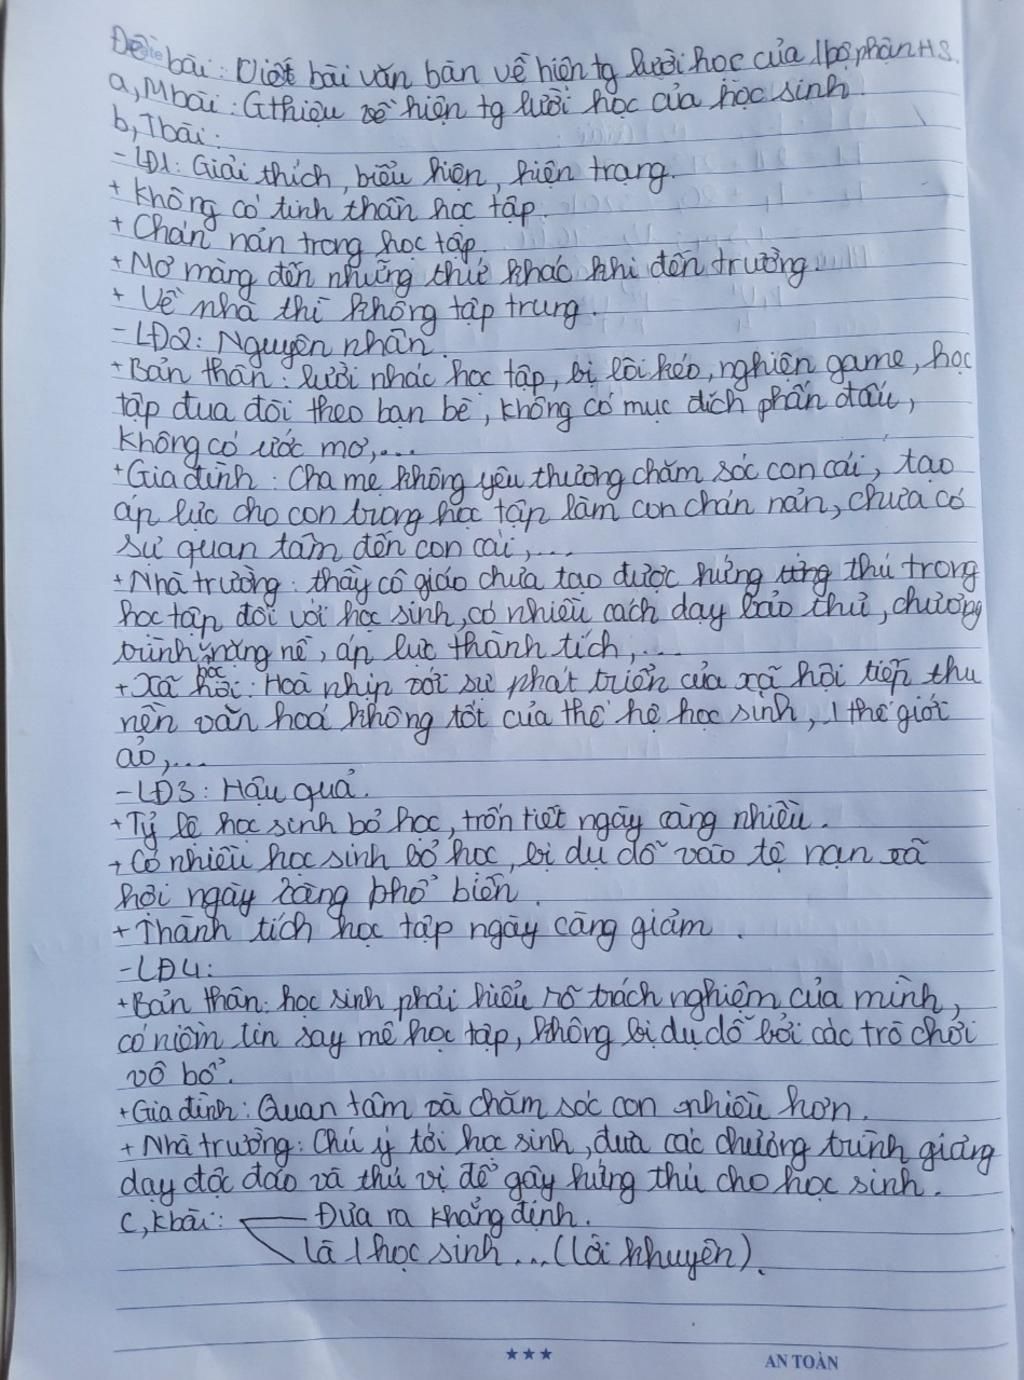 Đề bài: Viết bài văn bàn về hiện tg lười học của 1 bộ phận HS.
a, Mbài: Gthiệu về hiện tg lười học của học sinh.
b, Tbài:
- LĐ1: Giải thích, biểu hiện, hiện trạng.
+ Không có tinh thần học tập.
+ Chán nản trong học tập.
+ Mơ màng đến những thứ khác khi đến trường.
+ Về nhà thì không tập trung.
- LĐ2: Nguyên nhân.
+ Bản thân: lười nhác học tập, bị lôi kéo, nghiện game, học
tập đua đòi theo bạn bè, không có mục đích phấn đấu,
không có ước mơ,...
+ Gia đình: Cha mẹ không yêu thương chăm sóc con cái, tạo
áp lực cho con trong học tập làm con chán nản, chưa có
sự quan tâm đến con cái,...
+ Nhà trường: thầy cô giáo chưa tạo được hứng thú trong
học tập đối với học sinh, có nhiều cách dạy bảo thủ, chương
trình học nặng nề, áp lực thành tích,...
+ Xã hội: Hoà nhịp với sự phát triển của xã hội tiếp thu
nền văn hoá không tốt của thế hệ học sinh, 1 thế giới
ảo,...
- LĐ3: Hậu quả.
+ Tỷ lệ học sinh bỏ học, trốn tiết ngày càng nhiều.
+ Có nhiều học sinh bỏ học, bị dụ dỗ vào tệ nạn xã
hội ngày càng phổ biến.
+ Thành tích học tập ngày càng giảm.
- LĐ4:
+ Bản thân: học sinh phải hiểu rõ trách nghiệm của mình,
có niềm tin say mê học tập, không bị dụ dỗ bởi các trò chơi
vô bổ.
+ Gia đình: Quan tâm và chăm sóc con nhiều hơn.
+ Nhà trường: Chú ý tới học sinh, đưa các chương trình giảng
dạy độc đáo và thú vị để gây hứng thú cho học sinh.
c, Kbài: Đưa ra khẳng định.
Là 1 học sinh ... (lời khuyên).
★★★ AN TOÀN